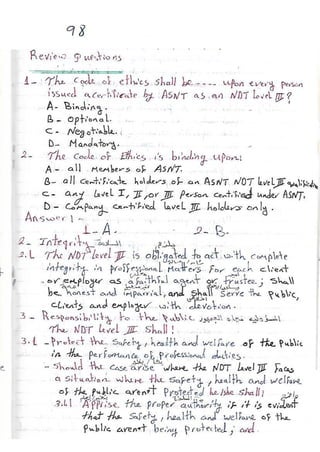 98
Review Questions
1- The Code of ethics shall be ---- upon every person
issued a certificate by ASNT as an NDT level III?
A- Binding.
B- Optional.
C- Negotiable.
D- Mandatory.
2- The Code of Ethics is binding upon:
A- all Members of ASNT.
B- all certificate holders of an ASNT NDT level III
C- any Level I, II, or III Person certified under ASNT.
D- Company certified level III holders only.
Answer:
1- A. 2- B.
2- Integrity
2.1 The NDT level III is obligated to act with complete
integrity in professional Matters for each client
or employer as a faithful agent or trustee; Shall
be honest and imparrial, and Shall Serve the Public,
clients and employer with devotion.
3- Responsibility to the Public
The NDT level III Shall!
3.1 -Protect the Safety, health and welfare of the Public
in the performance of professional duties.
- Should the case arise where the NDT level III Faces
a situation where the Safety, health and welfare
of the Public aren't Protected he/she Shall;
3.1.1 Apprise the proper authority if it is evident
that the Safety, health and welfare of the
Public aren't being protected; and